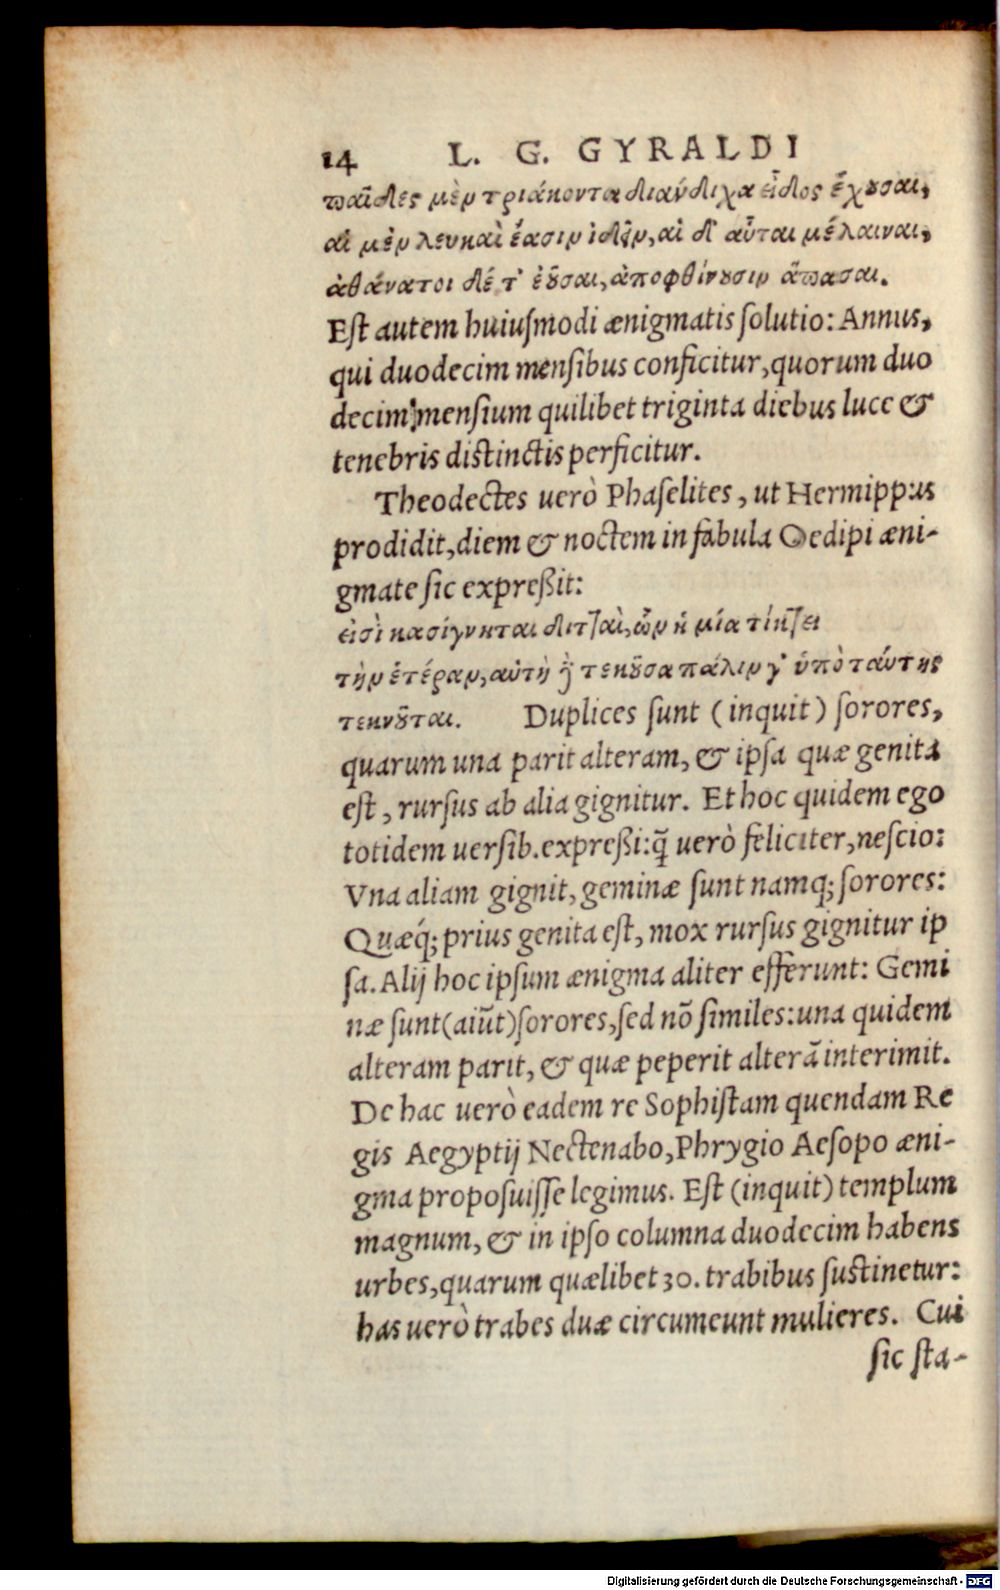 14 L. G. GYRALDI
παῖδες μὲν τριάκοντα διάνδιχα εἶδος ἔχουσαι,
αἱ μὲν λευκαὶ ἔασιν ἰδεῖν, αἱ δ' αὖται μέλαιναι,
ἀθάνατοι δέ τ' ἐοῦσαι, ἀποφθίνουσιν ἅπασαι.
Est autem huiusmodi ænigmatis solutio: Annus,
qui duodecim mensibus conficitur, quorum duo
decim mensium quilibet triginta diebus luce &
tenebris distinctis perficitur.
Theodectes uerò Phaselites, ut Hermippus
prodidit, diem & noctem in fabula Oedipi æni-
gmate sic expreßit:
εἰσὶ κασίγνηται διτ]αὶ, ὧν ἡ μία τίκ]ει
τὴν ἑτέραν, αὐτὴ δὲ τεκοῦσα πάλιν γ' ὑπὸ ταύτης
τεκνοῦται. Duplices sunt (inquit) sorores,
quarum una parit alteram, & ipsa quæ genita
est, rursus ab alia gignitur. Et hoc quidem ego
totidem uersib. expreßi: q̃ uerò feliciter, nescio:
Vna aliam gignit, geminæ sunt namq; sorores:
Quæq́; prius genita est, mox rursus gignitur ip
sa. Alij hoc ipsum ænigma aliter efferunt: Gemi
næ sunt (aiũt) sorores, sed nõ similes: una quidem
alteram parit, & quæ peperit alterã interimit.
De hac uerò eadem re Sophistam quendam Re
gis Aegyptij Nectenabo, Phrygio Aesopo æni-
gma proposuisse legimus. Est (inquit) templum
magnum, & in ipso columna duodecim habens
urbes, quarum quælibet 30. trabibus sustinetur:
has uerò trabes duæ circumeunt mulieres. Cui
sic sta-
Digitalisierung gefördert durch die Deutsche Forschungsgemeinschaft - DFG